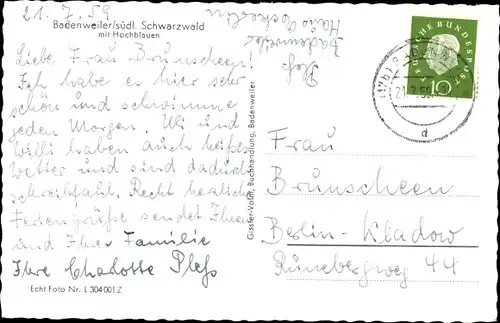 21. 7. 59
Badenweiler/südl. Schwarzwald
mit Hochblauen
Liebe Frau Brunscheen!
Ich habe es hier sehr
schön und schwimme
jeden Morgen. Uli und
Willi haben auch heißes
Wetter und sind dadurch
schreibfaul. Recht herzliche
Feriengrüße sendet Ihnen
und Ihrer Familie
Ihre Charlotte Pleß
Echt Foto Nr. L 304 001 Z
Pleß
Badenweiler
Haus
Gissler-Vogt, Buchhandlung, Badenweiler
DEUTSCHE BUNDESPOST
10
21.7.59
d
Frau
Brunscheen
Berlin-Kladow
Runebergweg 44